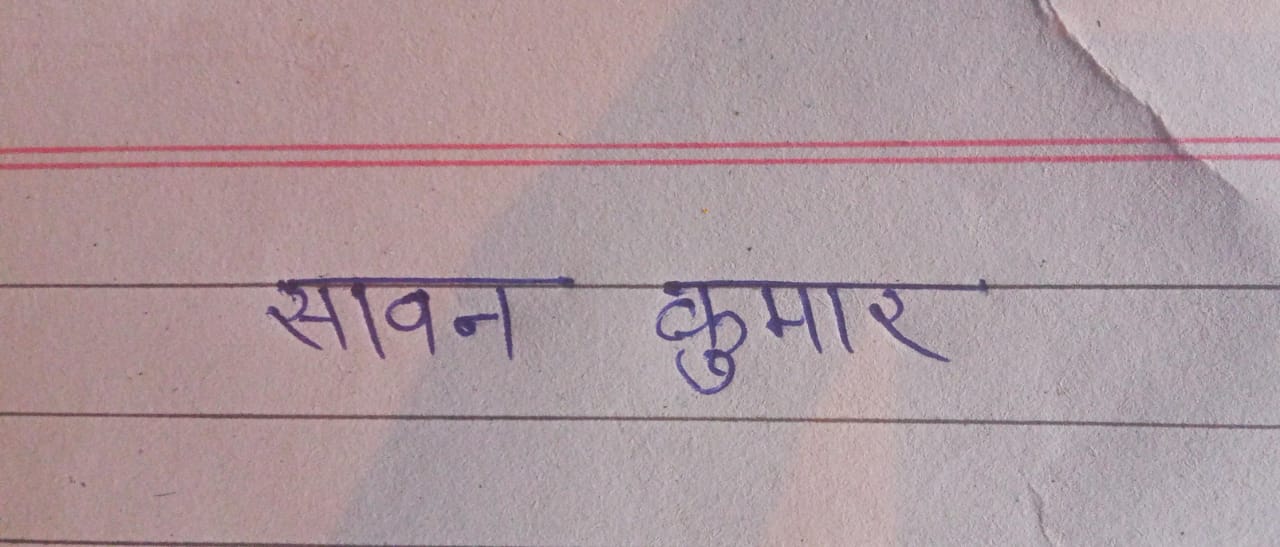 सावन कुमार